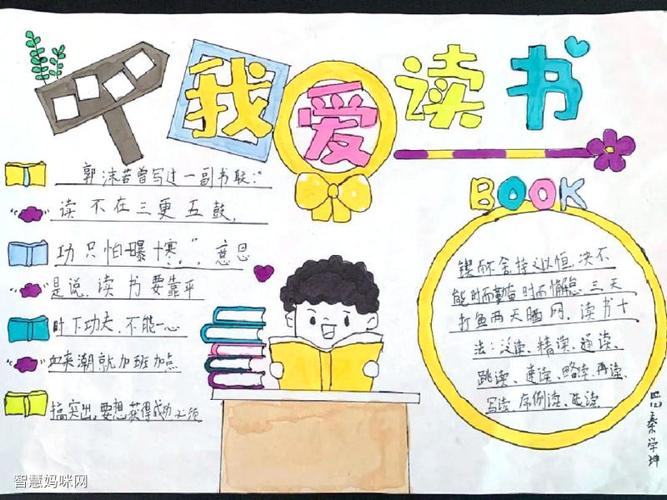 我爱读书
BOOK
郭沫若曾写过一副书联:“
读不在三更五鼓,
功只怕一曝十寒。”, 意思
是说,读书要靠平
时下功夫,不能一心
血来潮就加班加点
搞突出,要想获得成功必须
锲而不舍持之以恒,决不
能时而勤奋时而惰怠,三天
打鱼两天晒网,读书十
法:泛读、精读、通读、
跳读、速读、略读、再读、
写读、序例读、选读
秦学坤
智慧妈咪网